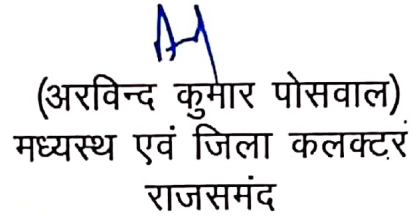 (अरविन्द कुमार पोसवाल)
मध्यस्थ एवं जिला कलक्टर
राजसमंद